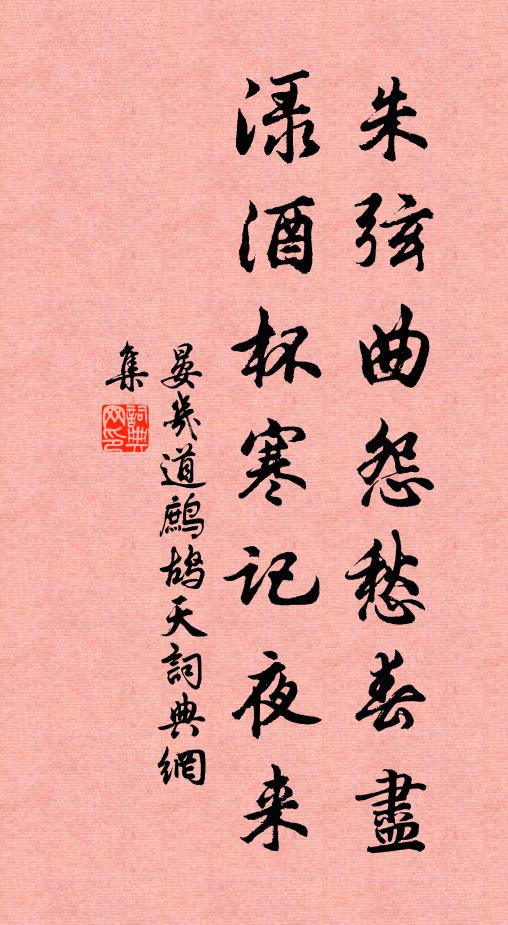 朱弦曲怨愁春盡
渌酒杯寒记夜来
晏幾道鷓鴣天詞典網
集
詞典
网印